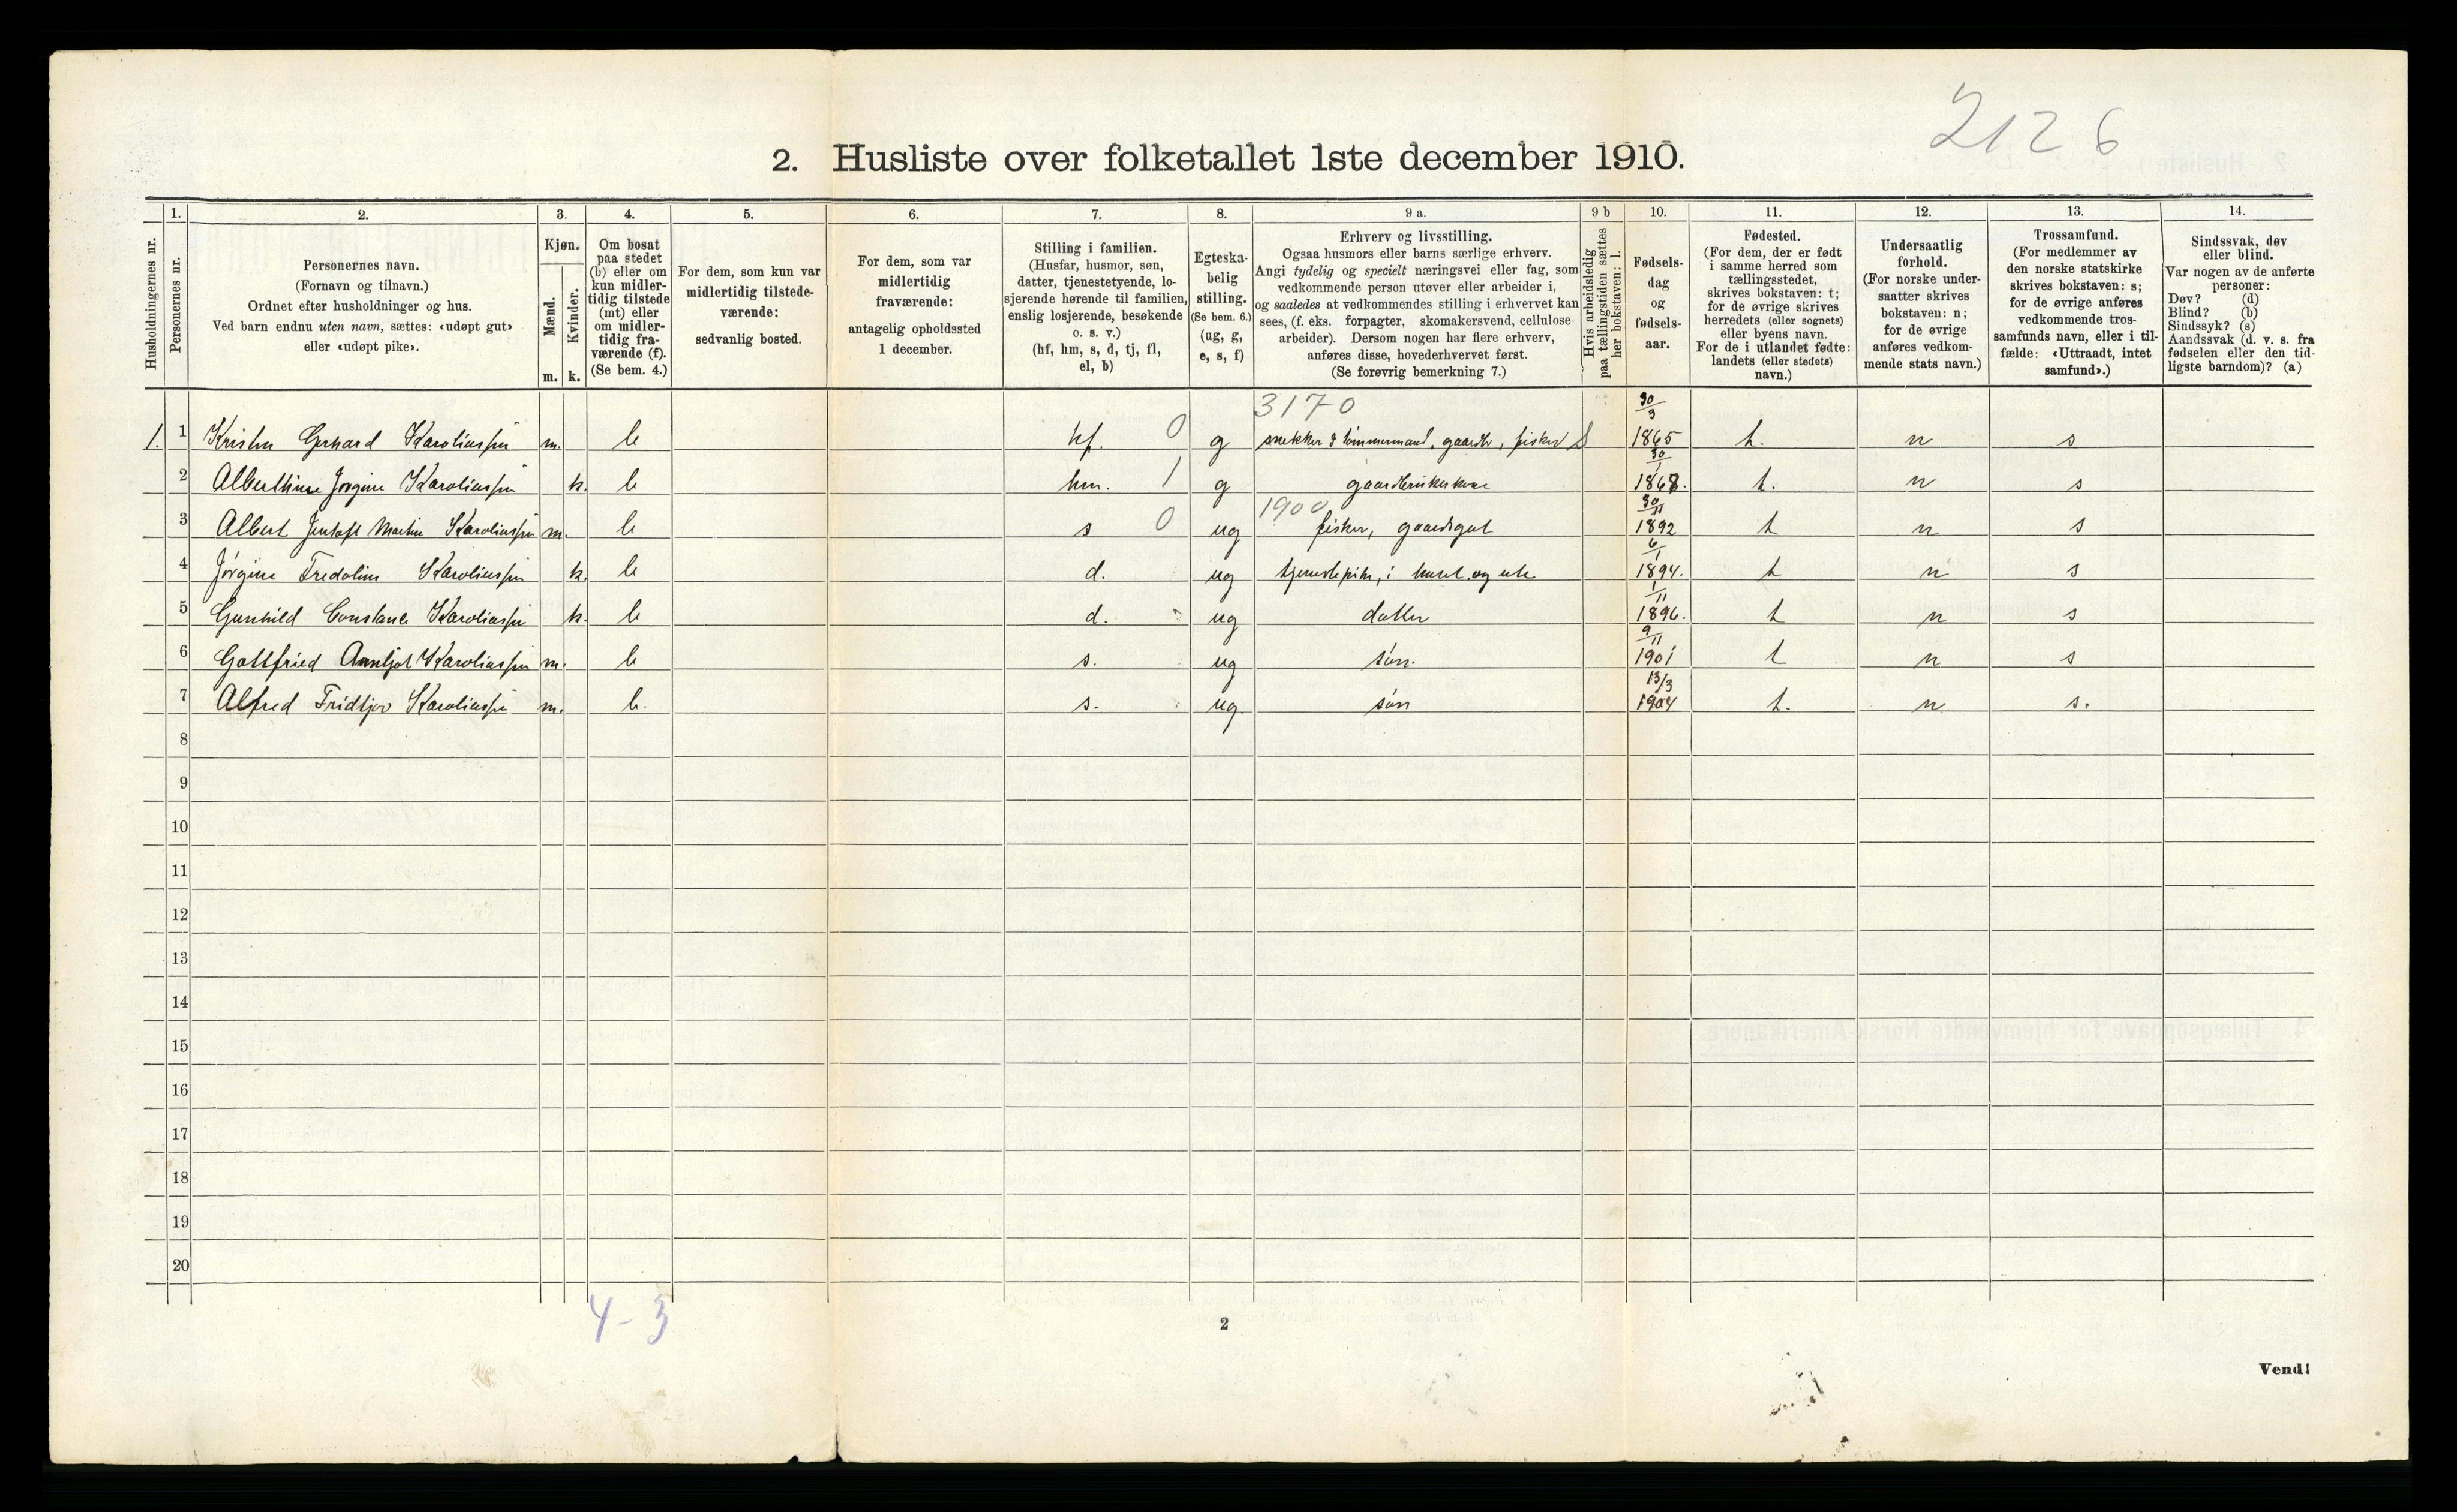 2126
2. Husliste over folketallet 1ste december 1910.
Husholdningernes nr.
1. Personernes nr.
2. Personernes navn.
(Fornavn og tilnavn.)
Ordnet efter husholdninger og hus.
Ved barn endnu uten navn, sættes: «udøpt gut»
eller «udøpt pike».
3. Kjøn.
Mænd. Kvinder.
m. k.
4. Om bosat
paa stedet
(b) eller om
kun midler-
tidig tilstede
(mt) eller
om midler-
tidig fra-
værende (f).
(Se bem. 4.)
5. For dem, som kun var
midlertidig tilstede-
værende:
sedvanlig bosted.
6. For dem, som var
midlertidig
fraværende:
antagelig opholdssted
1 december.
7. Stilling i familien.
(Husfar, husmor, søn,
datter, tjenestetyende, lo-
sjerende hørende til familien,
enslig losjerende, besøkende
o. s. v.)
(hf, hm, s, d, tj, fl,
el, b)
8. Egteska-
belig
stilling.
(Se bem. 6.)
(ug, g,
e, s, f)
9 a. Erhverv og livsstilling.
Ogsaa husmors eller barns særlige erhverv.
Angi tydelig og specielt næringsvei eller fag, som
vedkommende person utøver eller arbeider i,
og saaledes at vedkommendes stilling i erhvervet kan
sees, (f. eks. forpagter, skomakersvend, cellulose-
arbeider). Dersom nogen har flere erhverv,
anføres disse, hovederhvervet først.
(Se forøvrig bemerkning 7.)
9 b Hvis arbeidsledig
paa tællingstiden sættes
her bokstaven: l.
10. Fødsels-
dag
og
fødsels-
aar.
11. Fødested.
(For dem, der er født
i samme herred som
tællingsstedet,
skrives bokstaven: t;
for de øvrige skrives
herredets (eller sognets)
eller byens navn.
For de i utlandet fødte:
landets (eller stedets)
navn.)
12. Undersaatlig
forhold.
(For norske under-
saatter skrives
bokstaven: n;
for de øvrige
anføres vedkom-
mende stats navn.)
13. Trossamfund.
(For medlemmer av
den norske statskirke
skrives bokstaven: s;
for de øvrige anføres
vedkommende tros-
samfunds navn, eller i til-
fælde: «Uttraadt, intet
samfund».)
14. Sindssvak, døv
eller blind.
Var nogen av de anførte
personer:
Døv? (d)
Blind? (b)
Sindssyk? (s)
Aandssvak (d. v. s. fra
fødselen eller den tid-
ligste barndom)? (a)
3170
1. 1 Gerhard Karoliussen m. b hf. 0 g snekker & tømmermand, gaardbr, fisker 30/3 1865 t. n s
2 Jørgine Karoliussen k. b hm. 1 g gaardbrukerkone 30/1 1868. t. n s
1900
3 Albert Jentoft Martin Karoliussen m. b s 0 ug fisker, gaardsgut 30/11 1892 t n s
4 Jørgine Fredoline Karoliussen k. b d. ug tjenestepike, i huset og ute 6/1 1894. t n s
5 Gunhild Constance Karoliussen k. b d. ug datter 1/11 1896. t n s
6 Gottfried Karoliussen m. b s. ug søn. 9/11 1901 t n s
7 Alfred Fridtjov Karoliussen m. b. s. ug søn 13/3 1904 t. n s.
8
9
10
11
12
13
14
15
16
17
18
19
20
4-3
2
Vend!